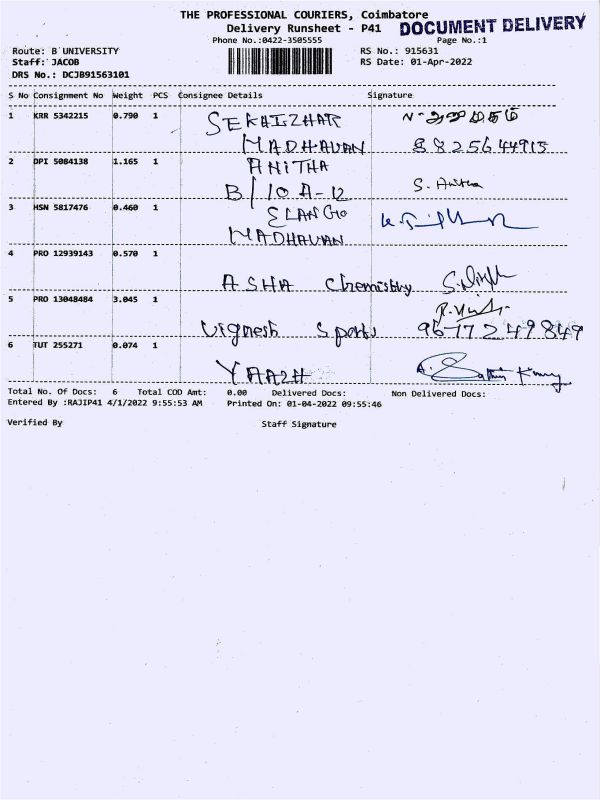 THE PROFESSIONAL COURIERS, Coimbatore
DOCUMENT DELIVERY
Delivery Runsheet - P41
Phone No.:0422-3505555 Page No.:1
Route: B UNIVERSITY RS No.: 915631
Staff: JACOB RS Date: 01-Apr-2022
DRS No.: DCJB91563101
S No Consignment No Weight PCS Consignee Details Signature
1 KRR 5342215 0.790 1 SEKHIZHAR
MADHAVAN 8825644915
2 DPI 5084138 1.165 1 ANITHA
B/10 A-12 S. Anitha
3 HSN 5817476 0.460 1 ELANGO
MADHAVAN
4 PRO 12939143 0.570 1
ASHA Chemistry
5 PRO 13048484 3.045 1
Vignesh Sports 9677249849
6 TUT 255271 0.074 1
YAAZH
Total No. Of Docs: 6 Total COD Amt: 0.00 Delivered Docs: Non Delivered Docs:
Entered By :RAJIP41 4/1/2022 9:55:53 AM Printed On: 01-04-2022 09:55:46
Verified By Staff Signature